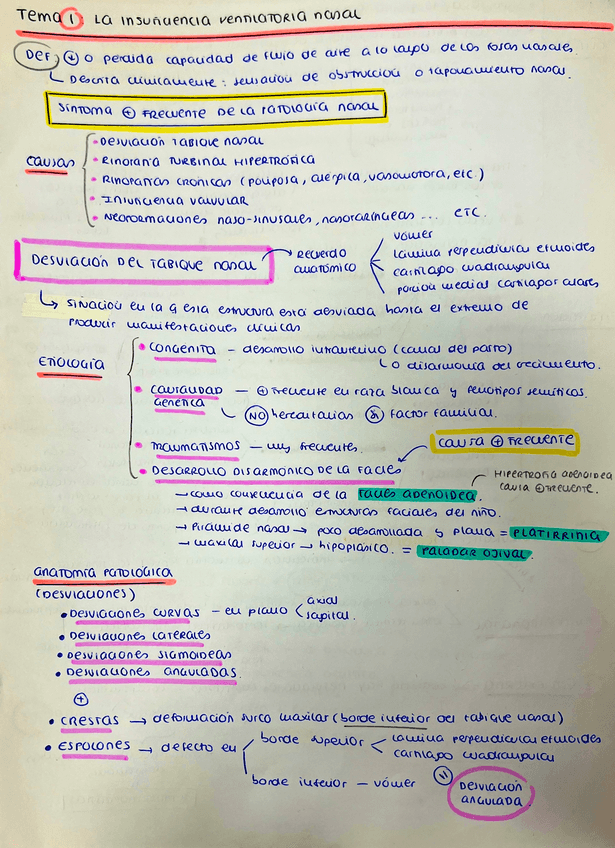 Tema 1: LA INSUFICIENCIA VENTILATORIA NASAL
DEF: ↓ o pérdida capacidad de flujo de aire a lo largo de las fosas nasales.
↳ Descrita clínicamente: sensación de obstrucción o taponamiento nasal.
SÍNTOMA ⊕ FRECUENTE DE LA PATOLOGÍA NASAL
CAUSAS
• DESVIACIÓN TABIQUE NASAL
• RINOPATÍA TURBINAL HIPERTRÓFICA
• RINOPATÍAS CRÓNICAS (POLIPOSA, ALÉRGICA, VASOMOTORA, ETC.)
• INSUFICIENCIA VALVULAR
• NEOFORMACIONES NASO-SINUSALES, NASOFARÍNGEAS ... ETC.
DESVIACIÓN DEL TABIQUE NASAL → RECUERDO ANATÓMICO
vómer
lámina perpendicular etmoides
cartílago cuadrangular
porción medial cartílagos alares
↳ SITUACIÓN en la q esta estructura está desviada hasta el extremo de
producir manifestaciones clínicas
ETIOLOGÍA
• CONGÉNITA – desarrollo intrauterino (canal del parto)
↳ o disarmonía del crecimiento.
• CAUSALIDAD GENÉTICA – ⊕ frecuente en raza blanca y fenotipos semíticos.
NO hereditarias sí factor familiar.
• TRAUMATISMOS – muy frecuentes.
CAUSA ⊕ FRECUENTE
• DESARROLLO DISARMÓNICO DE LA FACIES
HIPERTROFIA ADENOIDEA
CAUSA ⊕ FRECUENTE.
→ como consecuencia de la FACIES ADENOIDEA.
→ durante desarrollo estructuras faciales del niño.
→ Pirámide nasal → poco desarrollada y plana = PLATIRRINIA
→ maxilar superior → hipoplásico. = PALADAR OJIVAL.
ANATOMÍA PATOLÓGICA
(DESVIACIONES)
• DESVIACIONES CURVAS – en plano < axial
sagital.
• DESVIACIONES LATERALES
• DESVIACIONES SIGMOIDEAS
• DESVIACIONES ANGULADAS.
⊕
• CRESTAS → deformación surco maxilar (borde inferior del tabique nasal)
• ESPOLONES → defecto en
borde superior < lámina perpendicular etmoides
cartílago cuadrangular
borde inferior – vómer
=
DESVIACIÓN
ANGULADA.